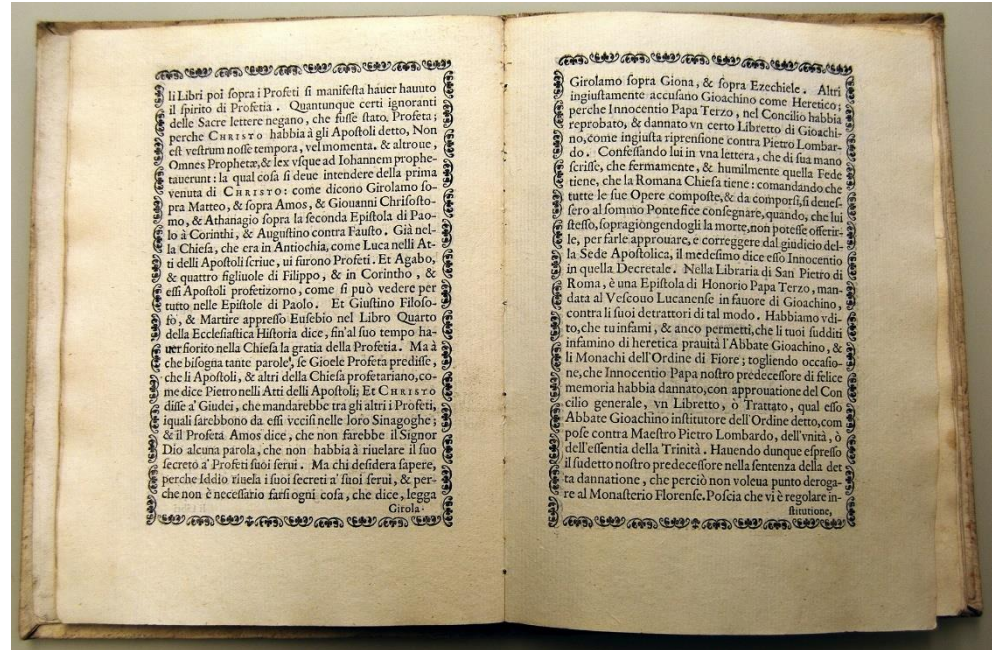 li Libri poi ſopra i Profeti ſi manifeſta hauer hauuto
il ſpirito di Profetia. Quantunque certi ignoranti
delle Sacre lettere negano, che fuſſe ſtato, Profeta;
perche CHRISTO habbia à gli Apoſtoli detto, Non
eſt veſtrum noſſe tempora, vel momenta. & altroue,
Omnes Prophetæ, & lex vſque ad Iohannem prophe-
tauerunt: la qual coſa ſi deue intendere della prima
venuta di CHRISTO: come dicono Girolamo ſo-
pra Matteo, & ſopra Amos, & Giouanni Chriſoſto-
mo, & Athanagio ſopra la ſeconda Epiſtola di Pao-
lo à Corinthi, & Auguſtino contra Fauſto. Già nel-
la Chieſa, che era in Antiochia, come Luca nelli At-
ti delli Apoſtoli ſcriue, ui furono Profeti. Et Agabo,
& quattro figliuole di Filippo, & in Corintho, &
eſſi Apoſtoli profetizorno, come ſi può vedere per
tutto nelle Epiſtole di Paolo. Et Giuſtino Filoſo-
fo, & Martire appreſſo Euſebio nel Libro Quarto
della Eccleſiaſtica Hiſtoria dice, fin'al ſuo tempo ha-
uer fiorito nella Chieſa la gratia della Profetia. Ma à
che biſogna tante parole, ſe Gioele Profeta prediſſe,
che li Apoſtoli, & altri della Chieſa profetariano, co-
me dice Pietro nelli Atti delli Apoſtoli; Et CHRISTO
diſſe a' Giudei, che mandarebbe tra gli altri i Profeti,
iquali ſarebbono da eſſi vcciſi nelle loro Sinagoghe;
& il Profeta Amos dice, che non farebbe il Signor
Dio alcuna parola, che non habbia à riuelare il ſuo
ſecreto a' Profeti ſuoi ſerui. Ma chi deſidera ſapere,
perche Iddio riuela i ſuoi ſecreti a' ſuoi ſerui, & per-
che non è neceſſario farſi ogni coſa, che dice, legga
Girola-
Girolamo ſopra Giona, & ſopra Ezechiele. Altri
ingiuſtamente accuſano Gioachino come Heretico;
perche Innocentio Papa Terzo, nel Concilio habbia
reprobato, & dannato vn certo Libretto di Gioachi-
no, come ingiuſta riprenſione contra Pietro Lombar-
do. Confeſſando lui in vna lettera, che di ſua mano
ſcriſſe, che fermamente, & humilmente quella Fede
tiene, che la Romana Chieſa tiene: comandando che
tutte le ſue Opere compoſte, & da comporſi, ſi deueſ-
ſero al ſommo Pontefice conſegnare, quando, che lui
ſteſſo, ſopragiongendogli la morte, non poteſſe offerir-
le, per farle approuare, e correggere dal giudicio del-
la Sede Apoſtolica, il medeſimo dice eſſo Innocentio
in quella Decretale. Nella Libraria di San Pietro di
Roma, è vna Epiſtola di Honorio Papa Terzo, man-
data al Veſcouo Lucanenſe in fauore di Gioachino,
contra li ſuoi detrattori di tal modo. Habbiamo vdi-
to, che tu infami, & anco permetti, che li tuoi ſudditi
infamino di heretica prauità l'Abbate Gioachino, &
li Monachi dell'Ordine di Fiore; togliendo occaſio-
ne, che Innocentio Papa noſtro predeceſſore di felice
memoria habbia dannato, con approuatione del Con
cilio generale, vn Libretto, ò Trattato, qual eſſo
Abbate Gioachino inſtitutore dell'Ordine detto, com
poſe contra Maeſtro Pietro Lombardo, dell'vnità, ò
dell'eſſentia della Trinità. Hauendo dunque eſpreſſo
il ſudetto noſtro predeceſſore nella ſentenza della det
ta dannatione, che perciò non voleua punto deroga-
re al Monaſterio Florenſe. Poſcia che vi è regolare in-
ſtitutione,